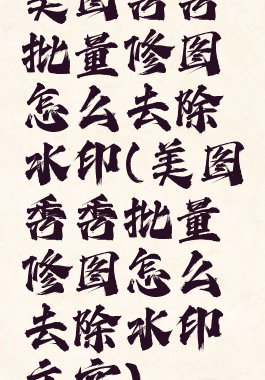 美图秀秀
批量修图
怎么去除
水印(美图
秀秀批量
修图怎么
去除水印
方案)